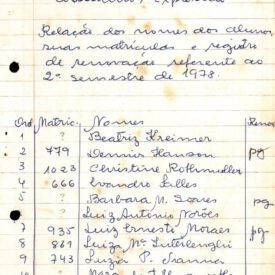 Relação dos nomes dos alunos,
suas matrículas e registro
de renovação referente ao
2º semestre de 1978.
Ord. Matríc. Nomes Renov
1 ? Beatriz Kreimer
2 779 Dennis Hanson pg
3 1023 Christine Rothmuller
4 666 Evandro Salles
5 ? Barbara M. Gomes pg
? Luiz Antonio Norões
7 935 Luiz Ernesto Moraes pg
8 861 Luiza Mª Interlenghi
9 743 Luzia P.